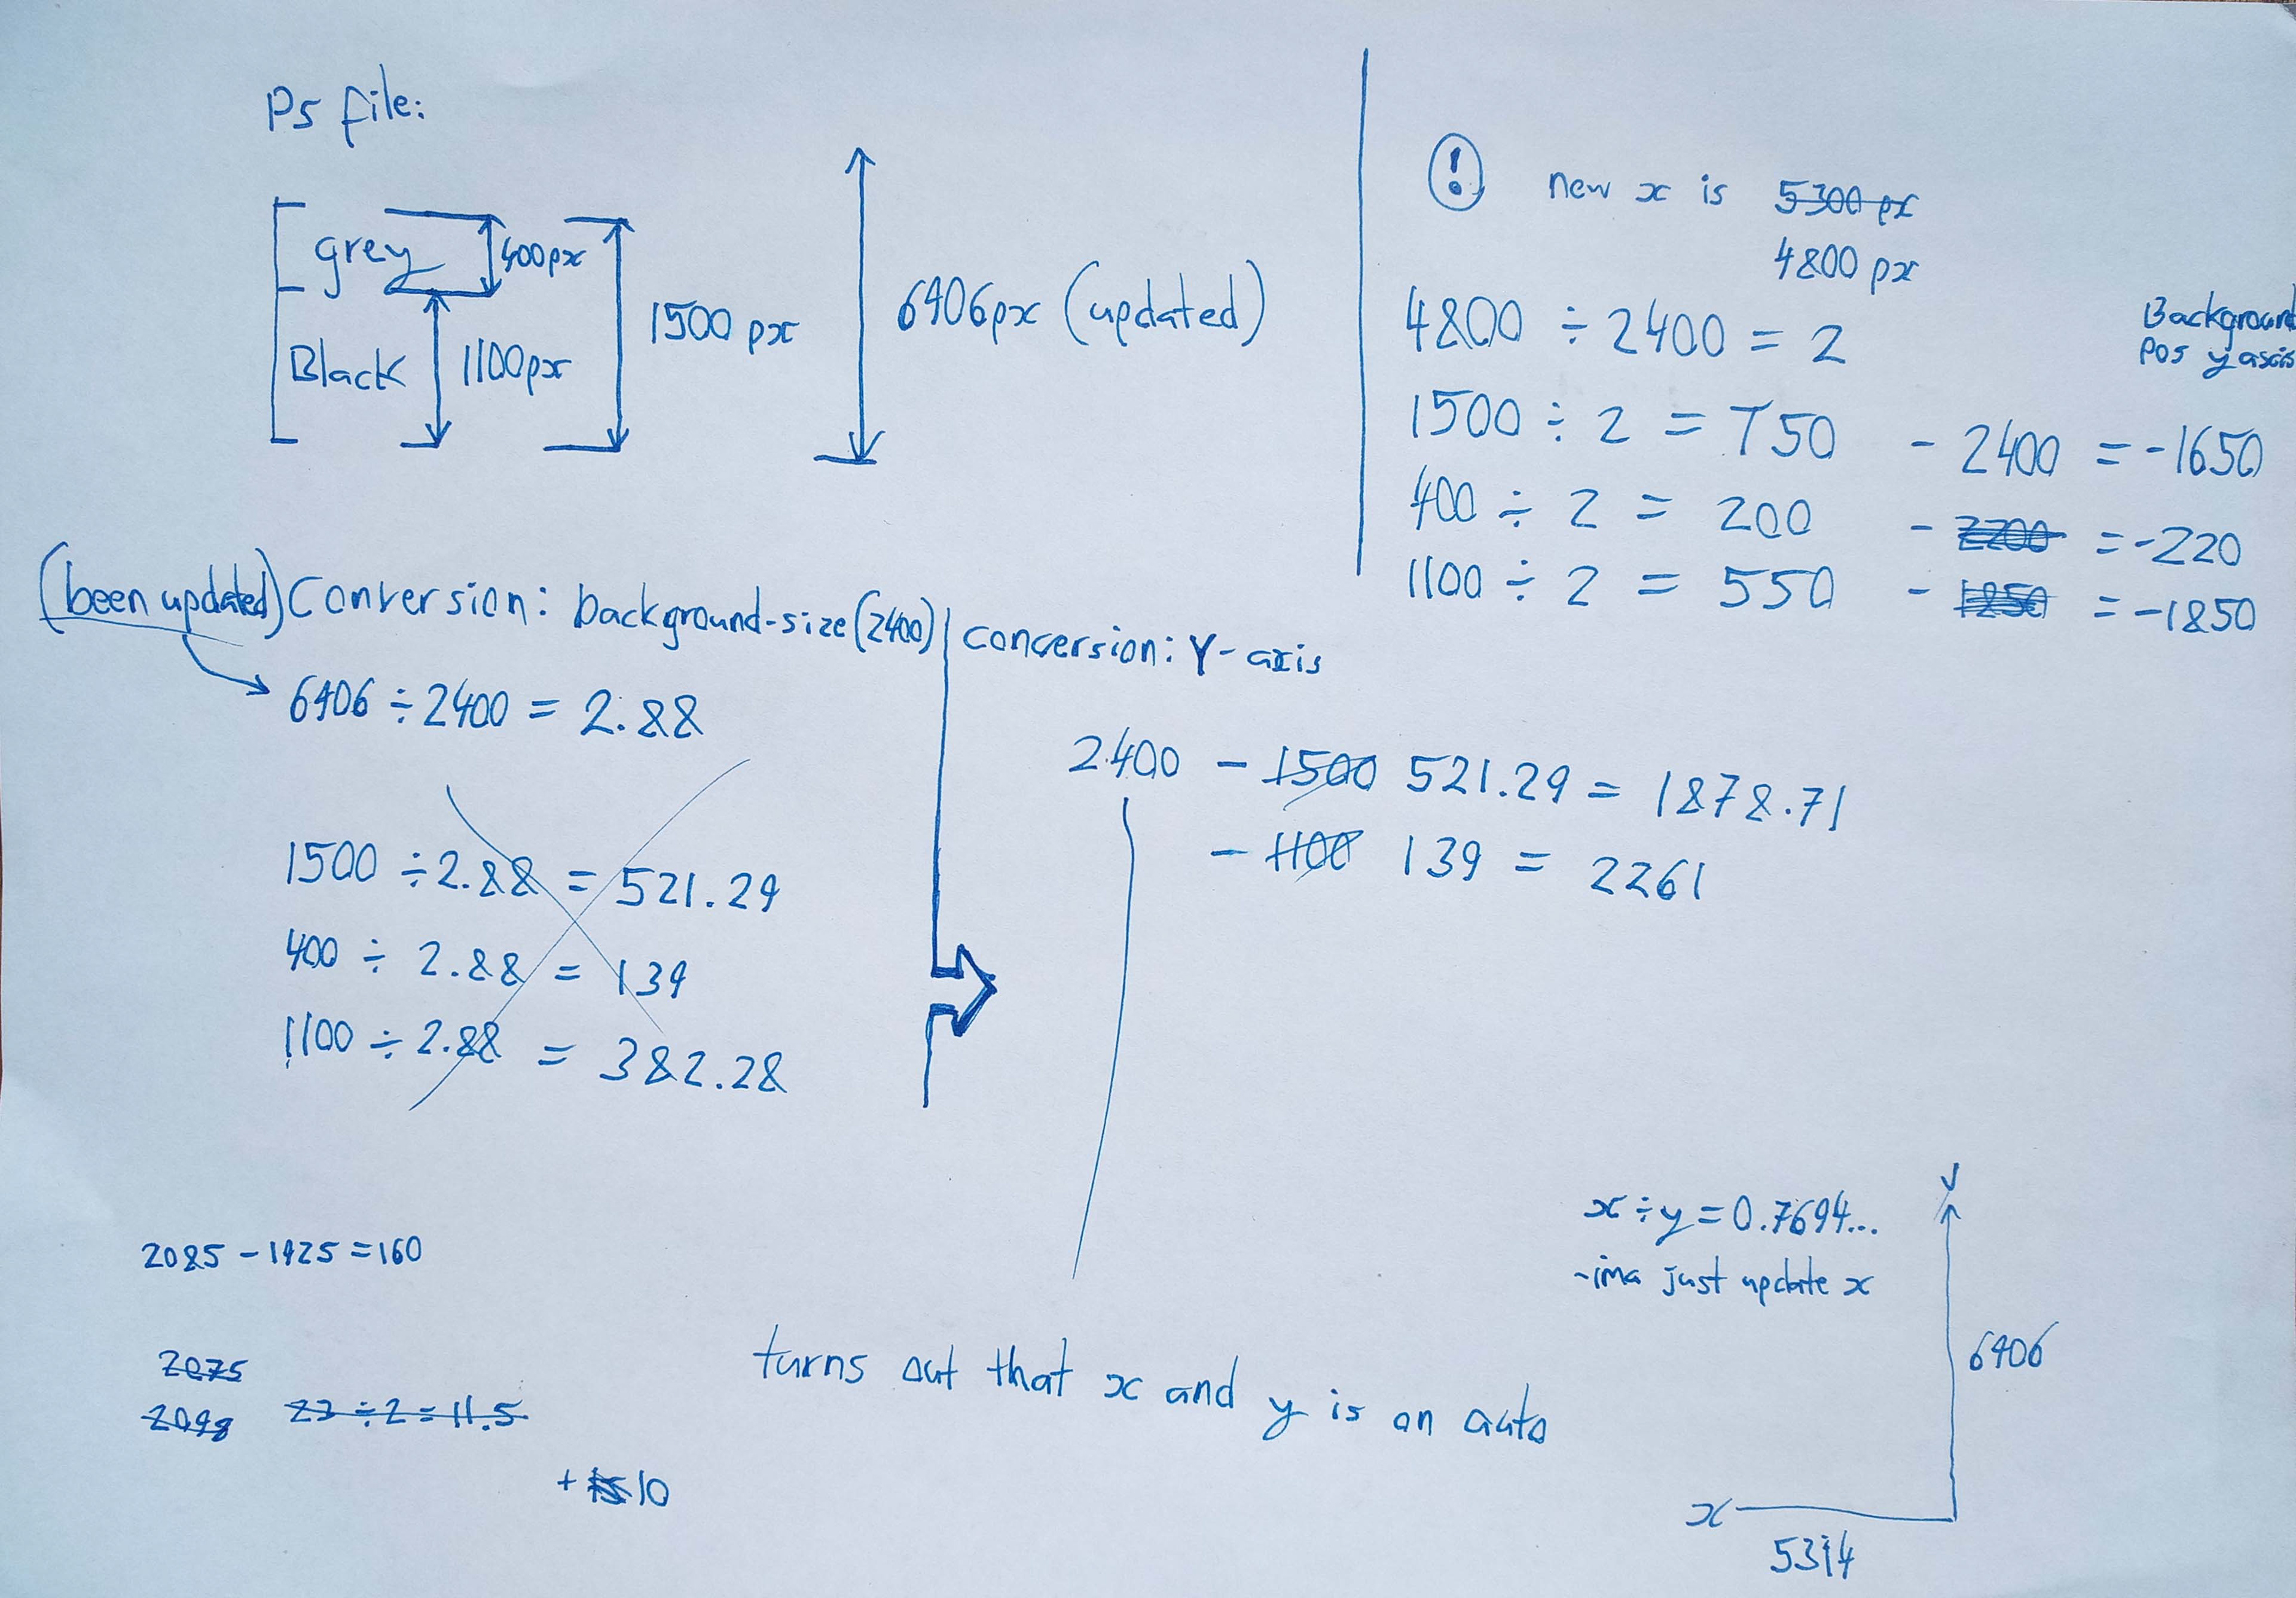 Ps file:
grey
400px
Black
1100px
1500 px
6906px (updated)
! new x is 5300 px
4800 px
4800 ÷ 2400 = 2
Background
Pos y axis
1500 ÷ 2 = 750 - 2400 = -1650
400 ÷ 2 = 200 - 2200 = -220
1100 ÷ 2 = 550 - 1850 = -1850
(been updated) Conversion: background-size (2400)
6906 ÷ 2400 = 2.88
1500 ÷ 2.88 = 521.29
400 ÷ 2.88 = 139
1100 ÷ 2.88 = 382.28
conversion: Y-axis
2400 - 1500 521.29 = 1878.71
- 1100 139 = 2261
2085 - 1925 = 160
2075
2098 23 ÷ 2 = 11.5
+ 15 10
turns out that x and y is on auto
x ÷ y = 0.7694...
-ima just update x
y
6906
x
5314